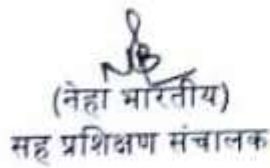 (नेहा भारतीय)
सह प्रशिक्षण संचालक